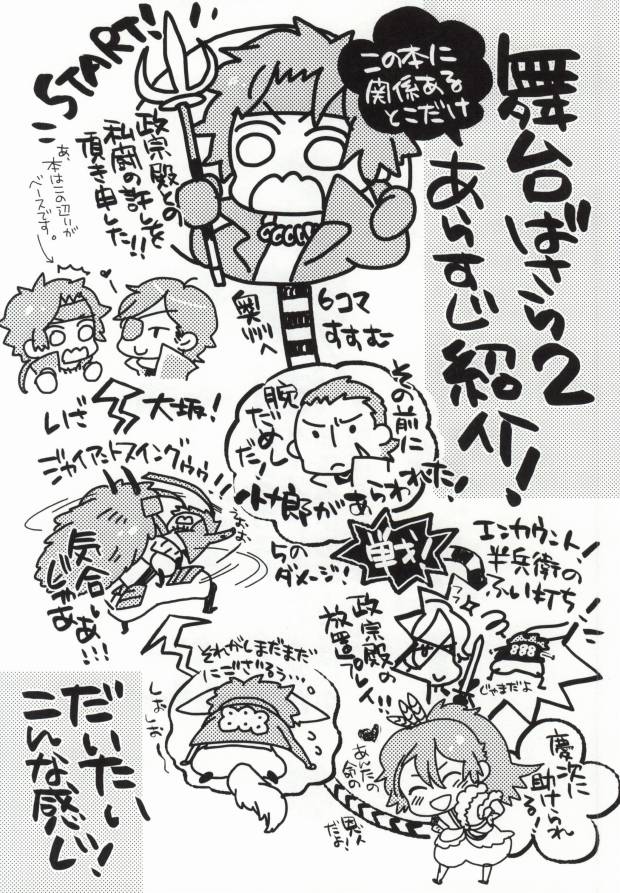 舞台ばさら2
あらすじ紹介!
この本に
関係ある
とこだけ
START!!
政宗殿との
私闘の許しを
頂き申した!!
あ、本はこの辺りが
ベースです。
6コマ
すすむ
奥州へ
その前に
腕
だめし
だ!
小十郎があらわれた!
戦!
5のダメージ!
エンカウント!
半兵衛の
ふい打ち!
じゃまだよ
政宗殿の
放置プレイ!!
慶次に
助けられ
る!
あんたの
気の
恩人
だよ!
それがしまだまだ
にござるぅ…。
しおしお
気合いじゃあ
あ!!!
ジャイアントスイングゥゥ!!
いざ
大坂!
だいたい
こんな感じ!